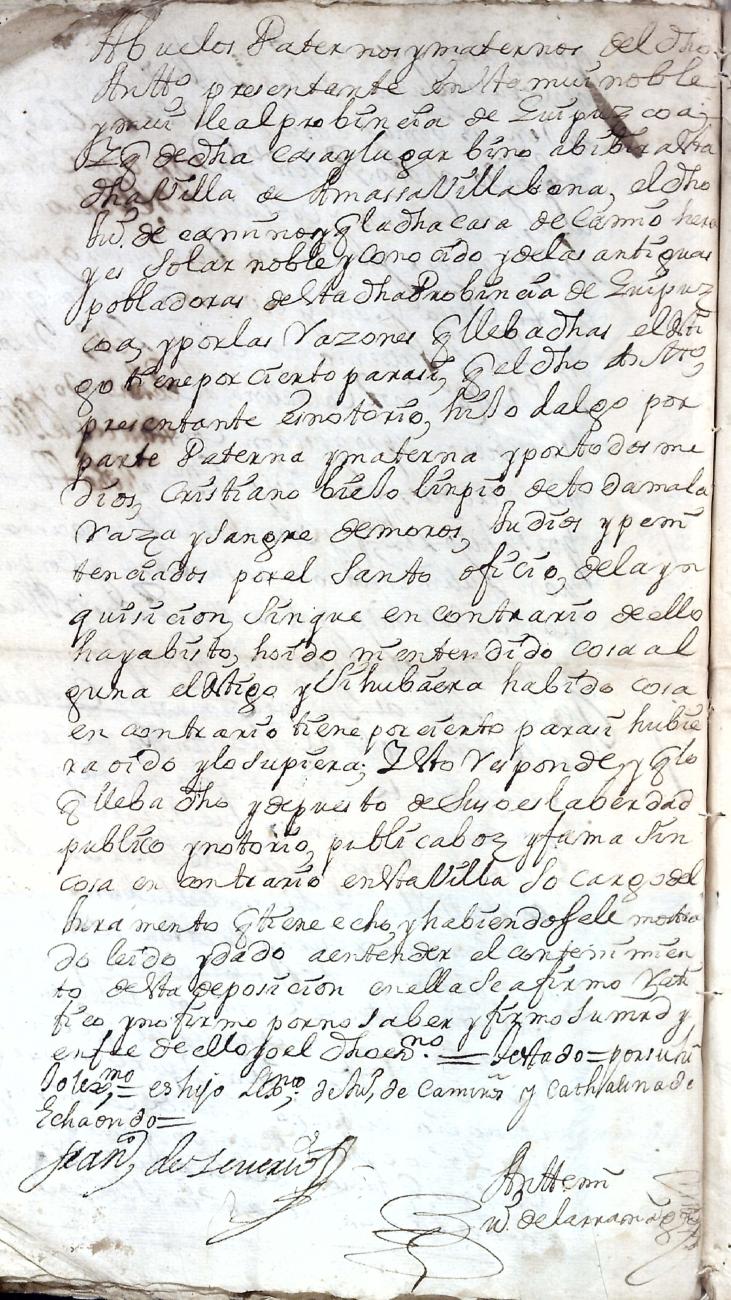 Abuelos Paternos y maternos del dho
Antto, presentante en esta mui noble
y mui leal probincia de Guipuzcoa,
Y q de dha casa y lugar bino a bibir a esta
dha Villa de Amassa Villabona, el dho
Ju. de caminos y q la dha casa de Camio hera
y es Solar noble y conocido y de las antiguas
pobladoras desta dha Probincia de Guipuz
coa, y por las Razones q lleba dhas el testi
go tiene por cierto para si, q el dho Antto,
presentante es notorio, hijo dalgo por
parte Paterna y materna y por todos me
dios, Cristiano biejo linpio, de toda mala
Raza y sangre de moros, Judios y peni
tenciados por el Santo oficio, de la yn
quisicion, Sin que en contrario de ello
haya bisto, hoido ni entendido cosa al
guna el testigo y Si hubiera habido cosa
en contrario tiene por cierto para si hubie
ra oido y lo supiera; Y esto Responde, y q lo
q lleba dho y depuesto de Suso es la berdad
publico y notorio, publica boz y fama Sin
cosa en contrario en esta Villa So cargo del
Juramento q tiene echo, y habiendo sele mostra
do leido y dado a entender el contenimien
to desta deposicion en ella Se afirmo Rati
fico y no firmo por no saber y firmo Su mrd y
en fe de ello yo el dho esno. = testado = por su hi
jo lexmo = es hijo lexmo de Ju, de Caminos y Cathalina de
Echaondo =
Antte mi
Ju. de larramendi